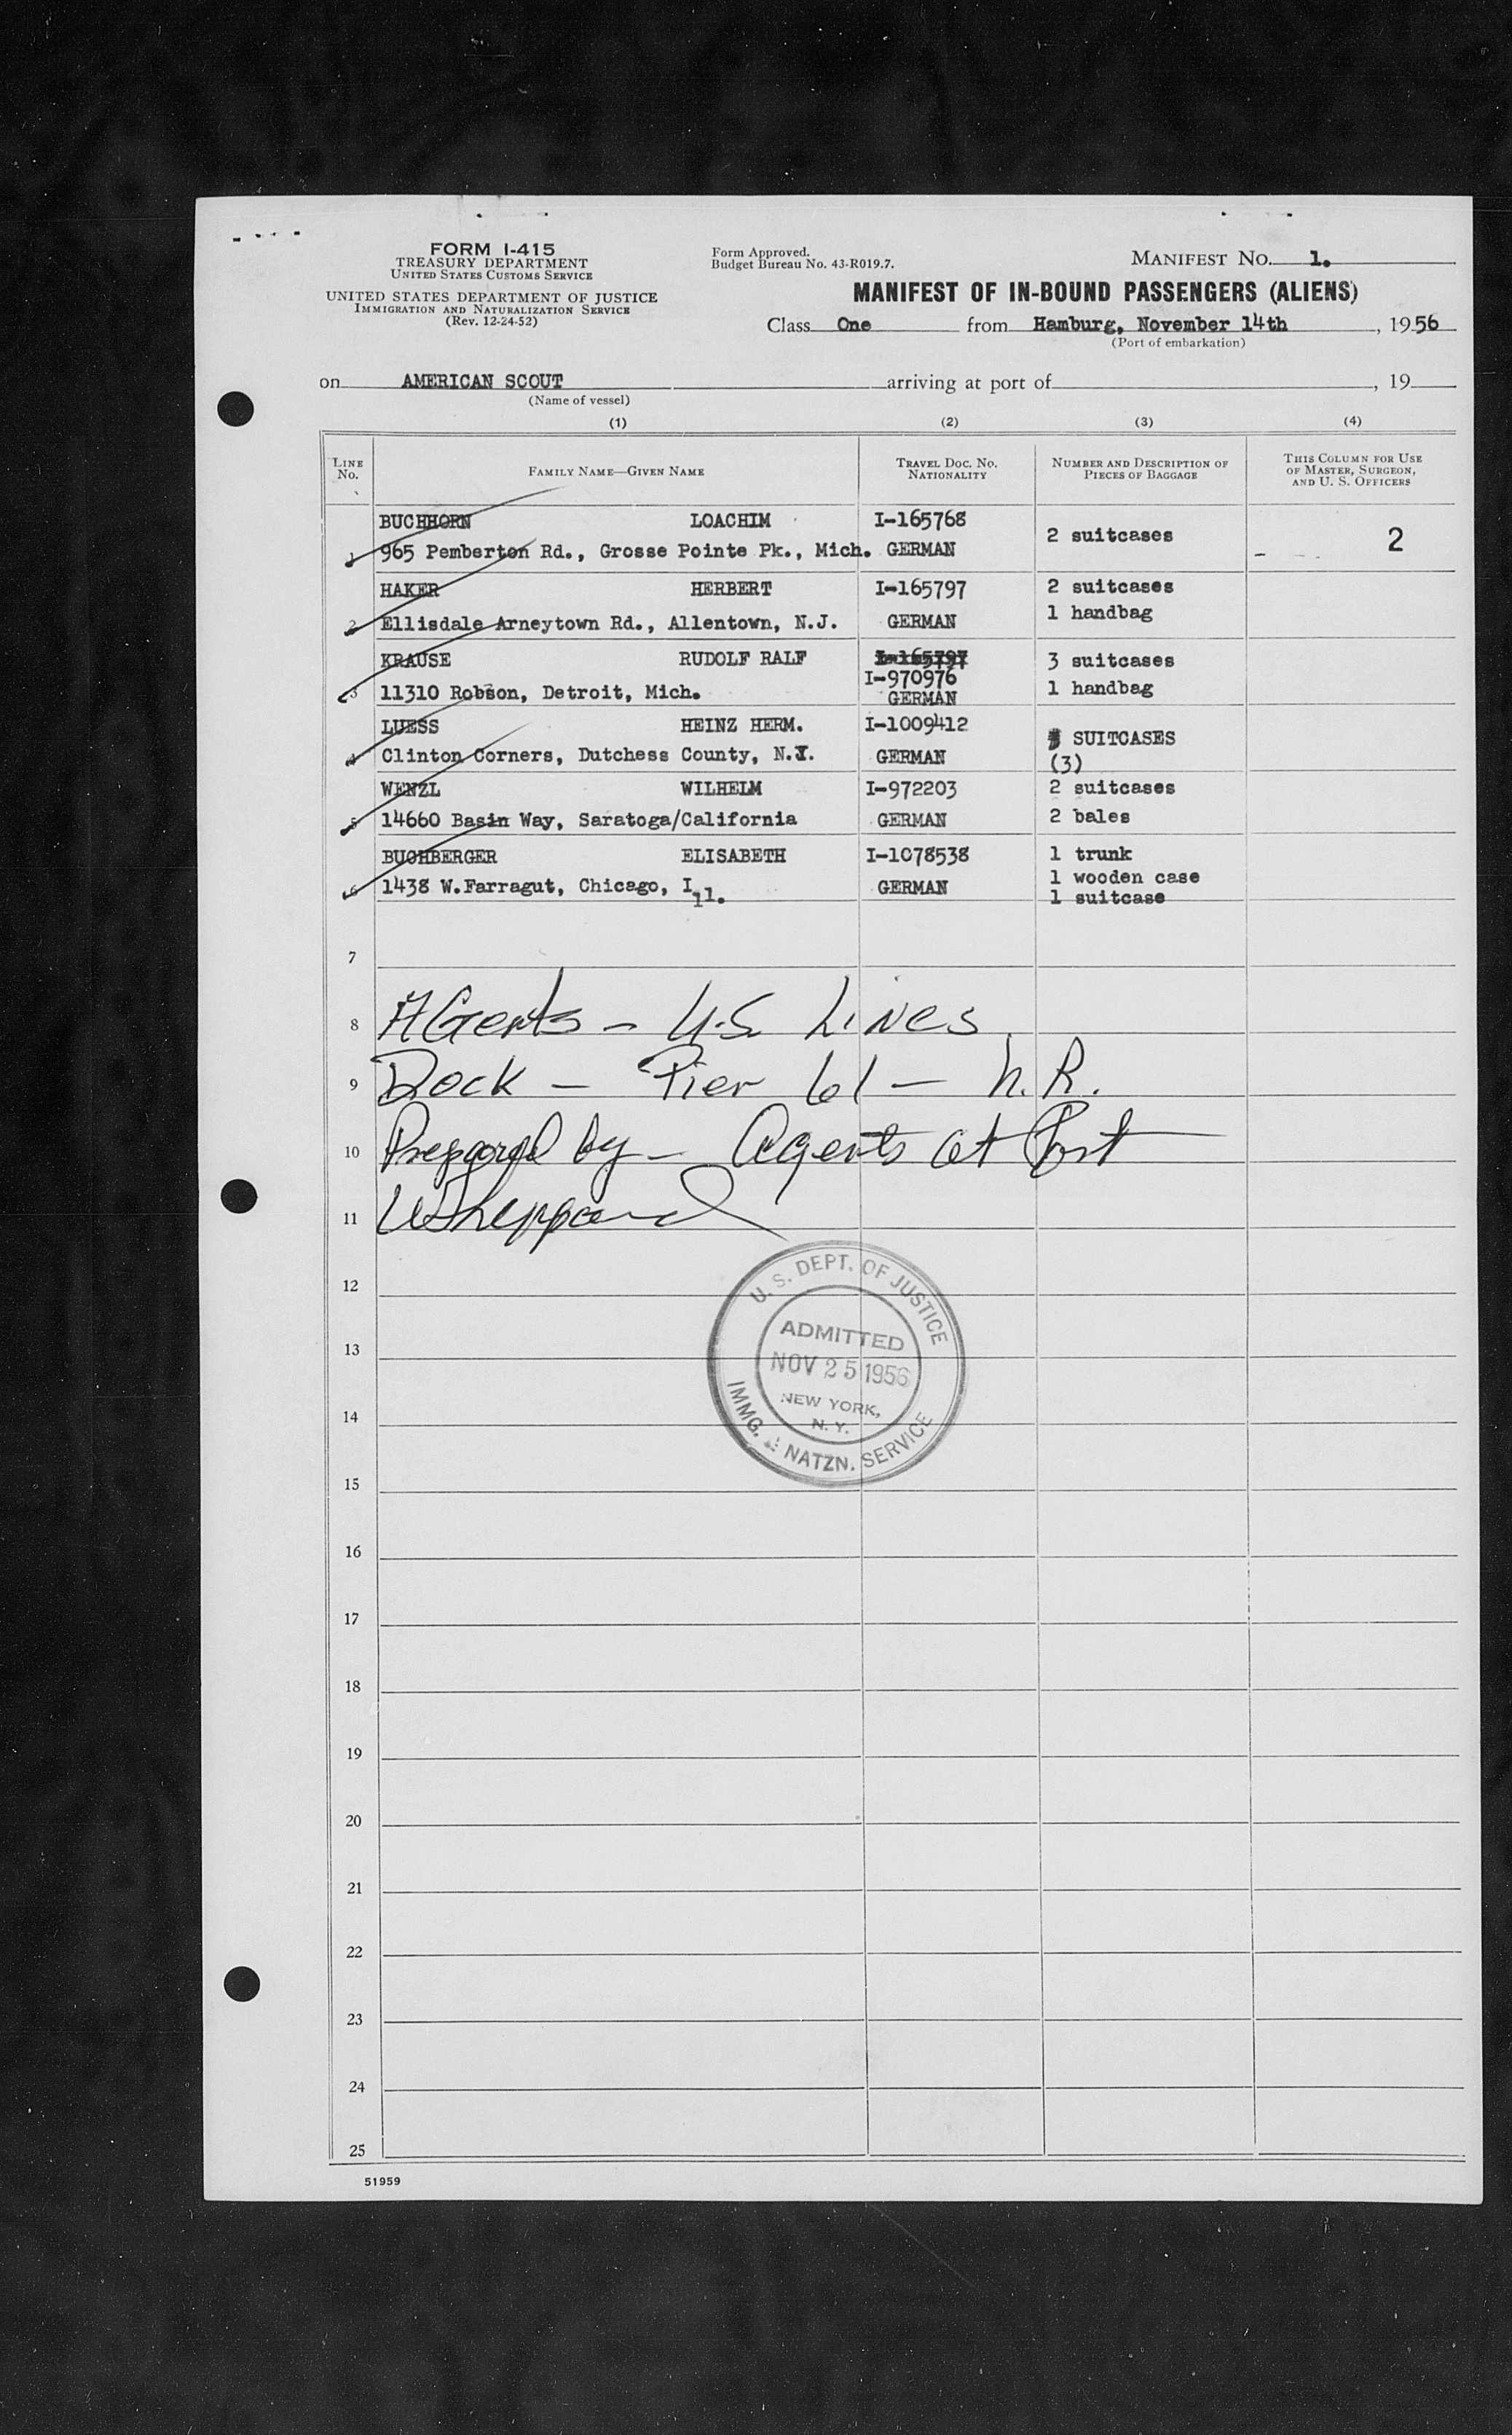 FORM I-415
TREASURY DEPARTMENT
UNITED STATES CUSTOMS SERVICE
UNITED STATES DEPARTMENT OF JUSTICE
IMMIGRATION AND NATURALIZATION SERVICE
(Rev. 12-24-52)
Form Approved.
Budget Bureau No. 43-R019.7.
MANIFEST NO. 1.
MANIFEST OF IN-BOUND PASSENGERS (ALIENS)
Class One from Hamburg, November 14th, 1956
(Port of embarkation)
on AMERICAN SCOUT arriving at port of , 19
(Name of vessel)
(1) (2) (3) (4)
LINE No. FAMILY NAME—GIVEN NAME TRAVEL DOC. NO. NATIONALITY NUMBER AND DESCRIPTION OF PIECES OF BAGGAGE THIS COLUMN FOR USE OF MASTER, SURGEON, AND U. S. OFFICERS
BUCHHORN LOACHIM I-165768 2 suitcases 2
1 965 Pemberton Rd., Grosse Pointe Pk., Mich. GERMAN
HAKER HERBERT I-165797 2 suitcases
2 Ellisdale Arneytown Rd., Allentown, N.J. GERMAN 1 handbag
KRAUSE RUDOLF RALF I-165797 3 suitcases
I-970976
3 11310 Robson, Detroit, Mich. GERMAN 1 handbag
LUESS HEINZ HERM. I-1009412 SUITCASES
4 Clinton Corners, Dutchess County, GERMAN (3)
WENZL WILHELM I-972203 2 suitcases
5 14660 Basin Way, Saratoga/California GERMAN 2 bales
BUCHBERGER ELISABETH I-1078538 1 trunk
6 1438 W.Farragut, Chicago, Ill. GERMAN 1 wooden case
1 suitcase
7
8 AGents - U.S. Lines
9 Dock - Pier 61 - N.R.
10 Prepared by - Agents at Port
11 WSheppard
12
13
14
15
16
17
18
19
20
21
22
23
24
25
U. S. DEPT. OF JUSTICE
ADMITTED
NOV 25 1956
NEW YORK,
N. Y.
IMMG. & NATZN. SERVICE
51959